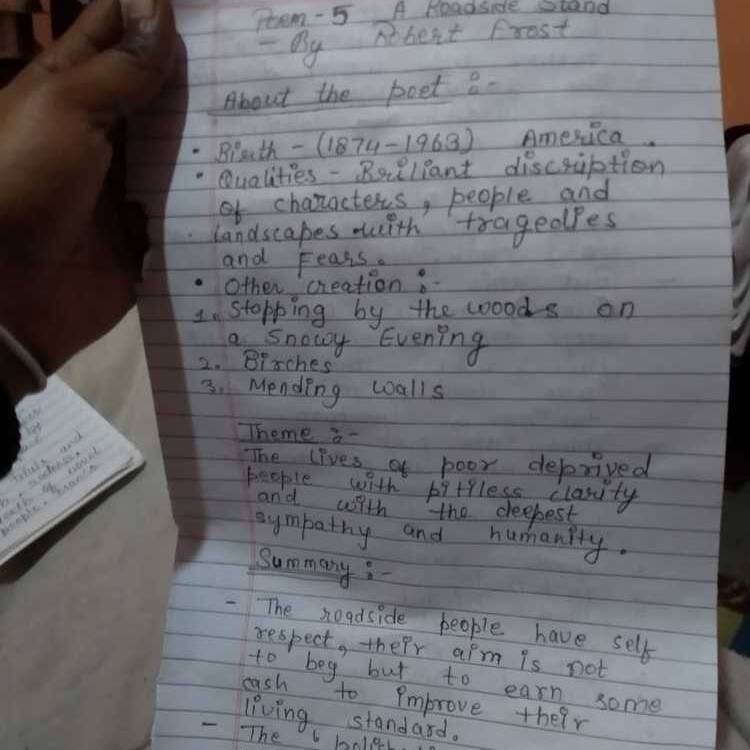 Poem - 5 A Roadside Stand
- By Robert Frost
About the poet :-
• Birth - (1874-1963) America.
• Qualities - Briliant discription
of characters, people and
landscapes with tragedies
and Fears.
• Other creation :-
1. Stopping by the woods on
a Snowy Evening
2. Birches
3. Mending walls
Theme :-
The lives of poor deprived
people with pitiless clarity
and with the deepest
sympathy and humanity.
Summary :-
- The roadside people have self
respect, their aim is not
to beg but to earn some
cash to improve their
living standard.
- The
and
people